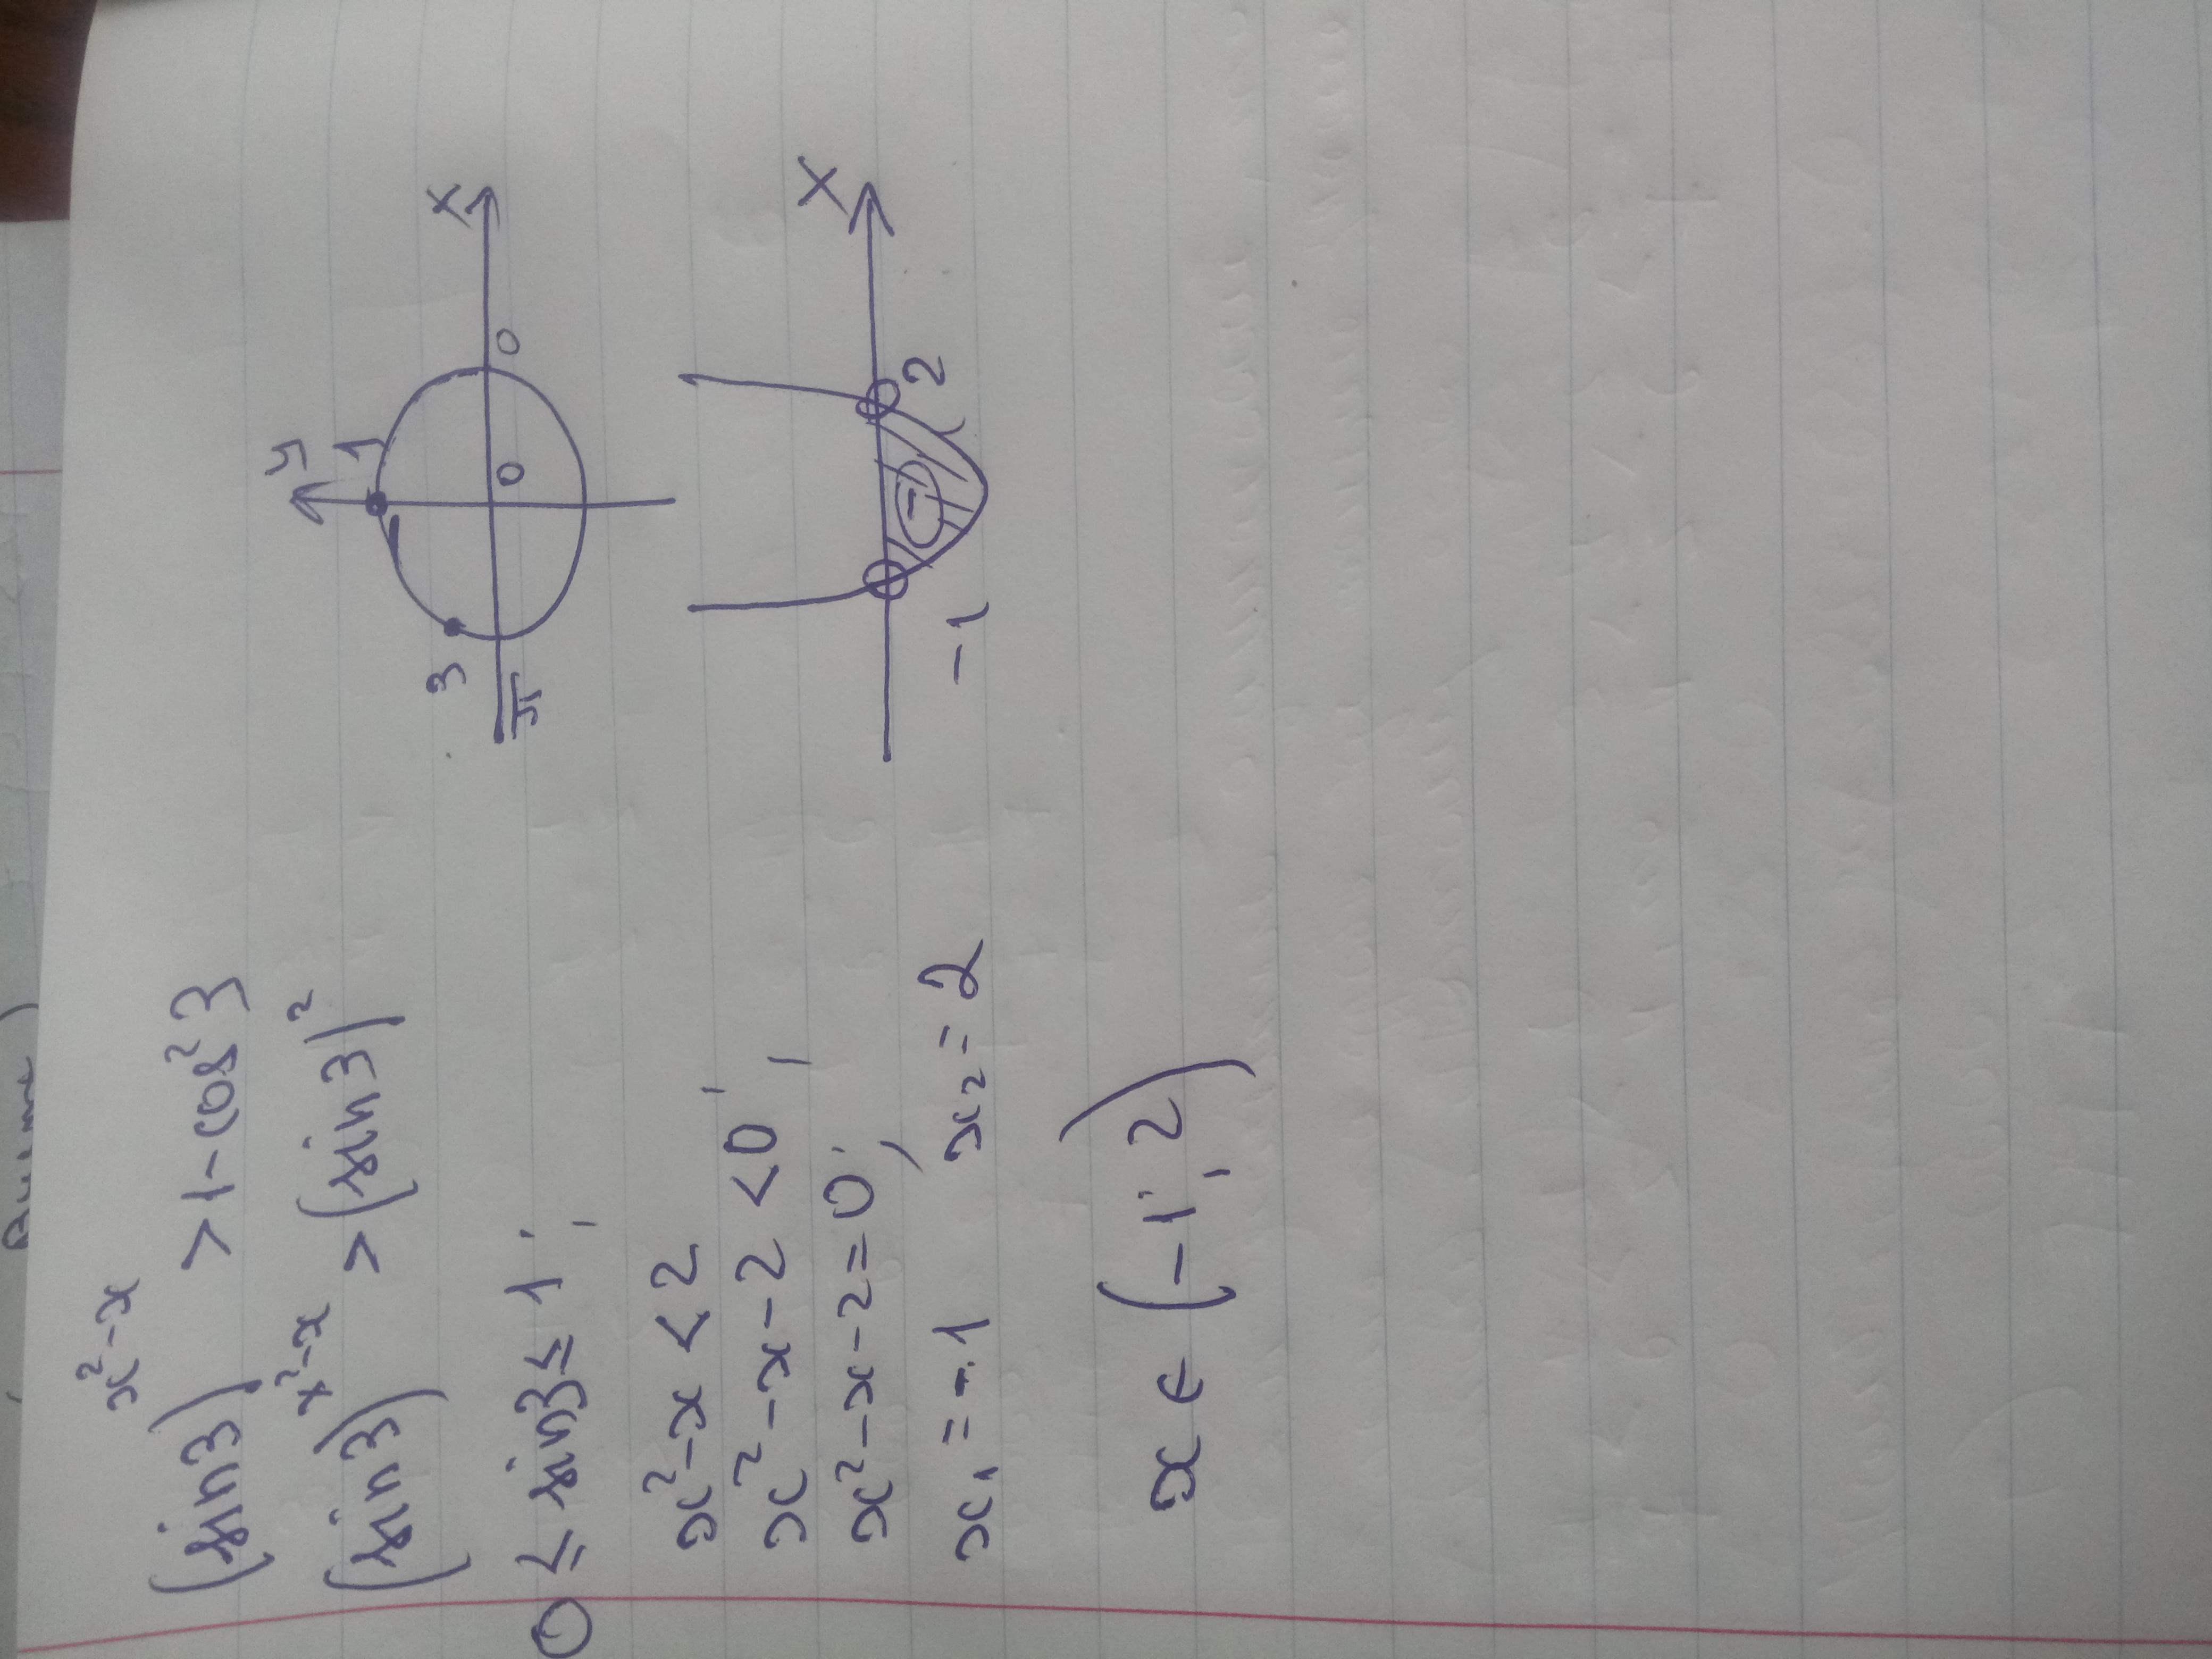 (sin3)^{x²-x} > 1-cos²3
(sin3)^{x²-x} > (sin3)²
0 ≤ sin3 ≤ 1;
x²-x < 2;
x²-x-2 < 0;
x²-x-2=0;
x₁=-1 x₂=2
x ∈ (-1; 2)
y
1
x
3
π
0
0
x
-1
2
-